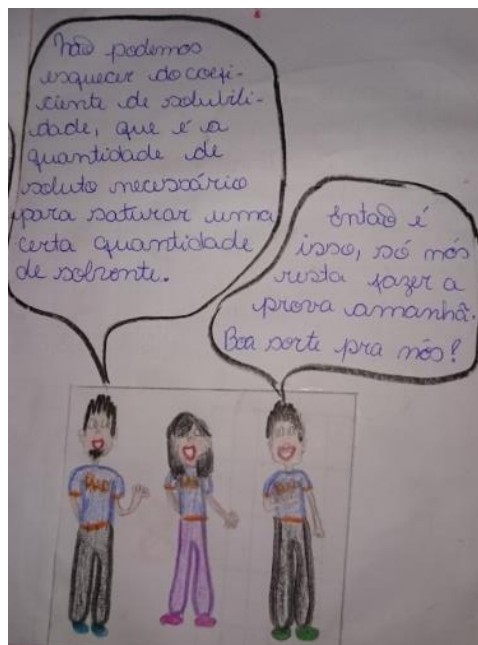 Não podemos
esquecer do coefi-
ciente de solubili-
dade, que é a
quantidade de
soluto necessário
para saturar uma
certa quantidade
de solvente.
Então é
isso, só nós
resta fazer a
prova amanhã.
Boa sorte pra nós!